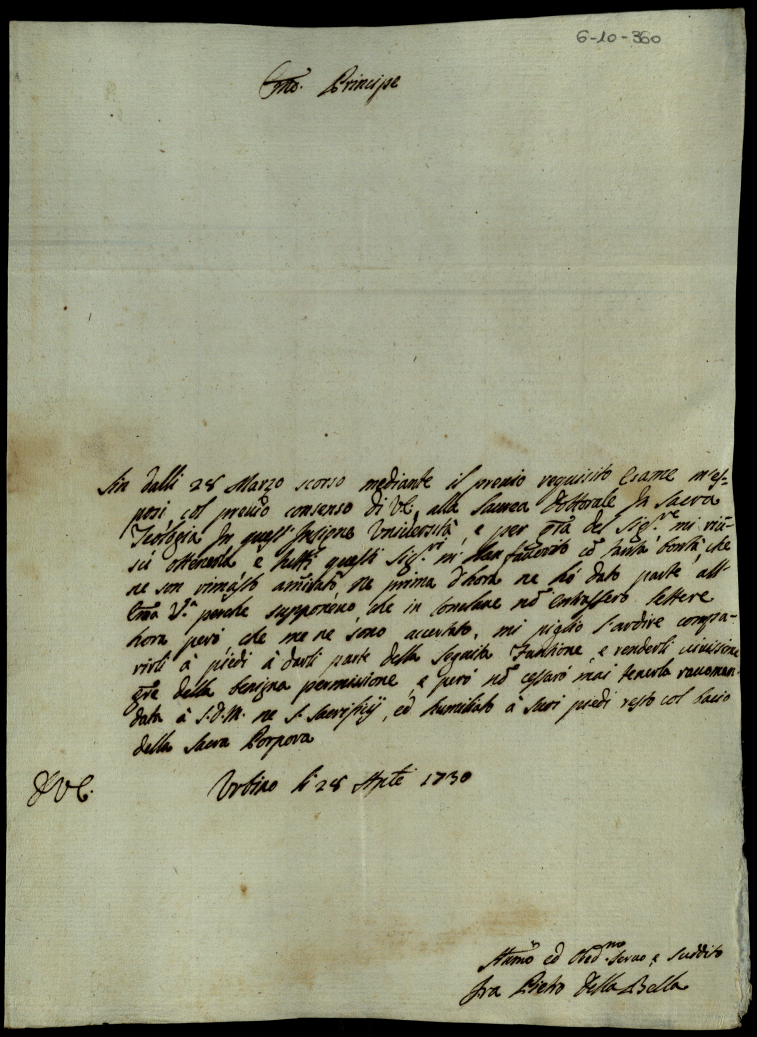 6-10-360
Emo. Principe
Sin dalli 28 Marzo scorso mediante il previo requisito Esame m'es-
posi col previo consenso di VE, alla Laurea Dottorale In Sacra
Teologia In quest' Insigne Università, e per gra del Sig.re mi riu-
scì ottenerla, e tutti questi Sig.ri mi han favorito cō tanta bontà, che
ne son rimasto amirato, Ne prima d'hora ne hò dato parte all'
Ema V.a perche supponevo che in Conclave nō entrassero lettere
hora però che me ne sono accertato, mi piglio l'ardire compa-
rirli à piedi à darli parte della seguita Funzione, e renderli
gre della benigna permissione, e però nō cessarò mai tenerla raccoman-
data à S.D.M. ne S. Sacrifizij, ed humiliato à suoi piedi resto col bacio
della Sacra Porpora
D VE.
Urbino li 28 Aple 1730
Humo ed Obed.mo Servo e Suddito
Fra Pietro Della Bella